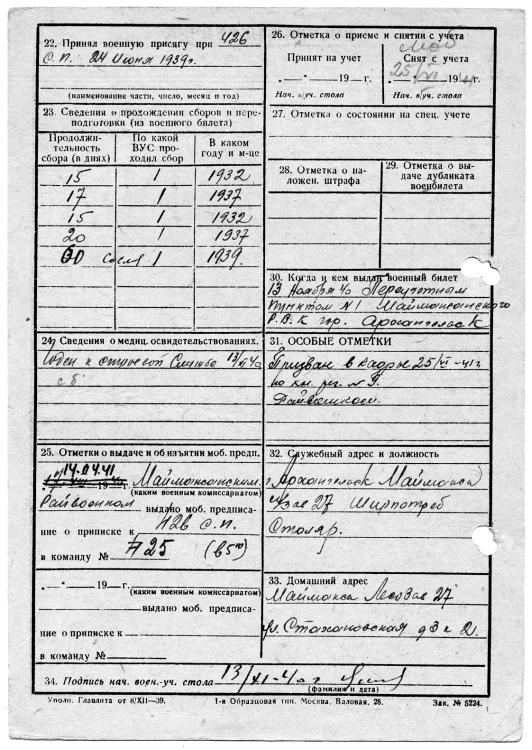 22. Принял военную присягу при 426
С.П. 24 Июня 1939г.
(наименование части, число, месяц и год)
23. Сведения о прохождении сборов и переподготовки (из военного билета)
Продолжительность сбора (в днях) По какой ВУС проходил сбор В каком году и м-це
15 1 1932
17 1 1937
15 1 1932
20 1 1937
60 1 1939.
24. Сведения о медиц. освидетельствованиях.
Годен к строевой Службе 13/XI 40
25. Отметки о выдаче и об изъятии моб. предп.
14.04.41 Маймаксанским
(каким военным комиссариатом)
Райвоенком выдано моб. предписание о приписке к 426 с.п.
в команду № 725
„ " 19 г.
(каким военным комиссариатом)
выдано моб. предписание о приписке к
в команду №
26. Отметка о приеме и снятии с учета
Моб
Принят на учет Снят с учета
„ " 19 г. 25/VI 1941г.
Нач. в/уч. стола Нач. в/уч. стола
27. Отметка о состоянии на спец. учете
28. Отметка о наложен. штрафа
29. Отметка о выдаче дубликата военбилета
30. Когда и кем выдан военный билет
13 Ноября 40 Переучетным
пунктом №1 Маймаксанского
Р.В.К гор. Архангельск
31. ОСОБЫЕ ОТМЕТКИ
Призван в кадры 25/VI-41г
по кн. рег. №
Райвоенком.
32. Служебный адрес и должность
г. Архангельск Маймакса
л/зав 27 Ширпотреб
Столяр.
33. Домашний адрес
Маймакса Лесозав 27
ул. Стахановская д 3 к 2.
34. Подпись нач. воен.-уч. стола 13/XI-40г
(фамилия и дата)
Уполн. Главлита от 8/XII—39. 1-я Образцовая тип. Москва, Валовая, 28. Зак. № 5224.